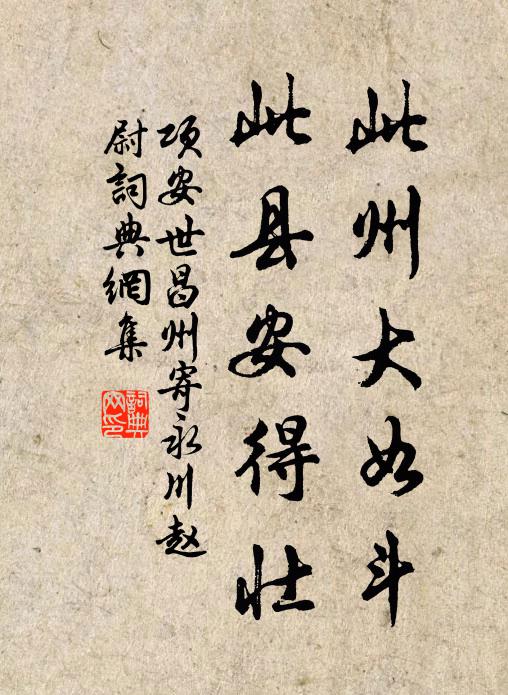 此州大如斗
此县安得壮
项安世昌州寄永川赵
尉詞典網集
詞典网印